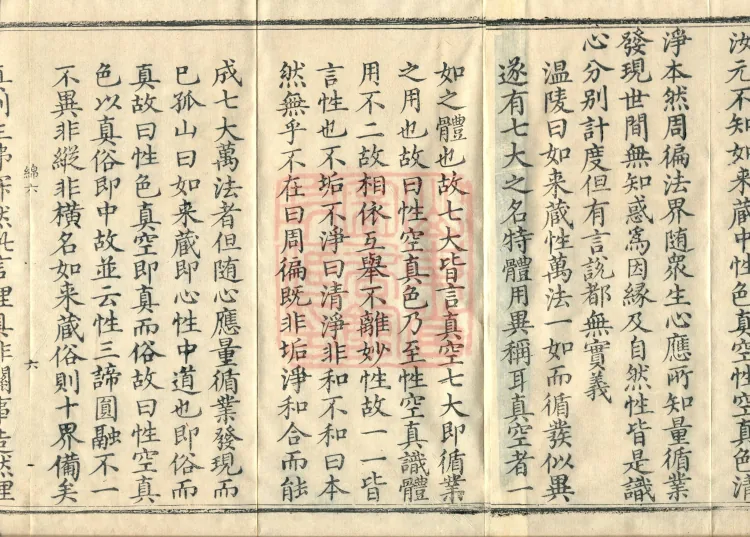 汝元不知如来蔵中性色真空性空真色清
淨本然周徧法界随衆生心應所知量循業
發現世間無知惑為因縁及自然性皆是識
心分别計度但有言説都無實義
温陵曰如来蔵性萬法一如而循業似異
遂有七大之名特體用異稱耳真空者一
如之體也故七大皆言真空七大即循業
之用也故曰性空真色乃至性空真識體
用不二故相依互舉不離妙性故一一皆
言性也不垢不淨曰清淨非和不和曰本
然無乎不在曰周徧既非垢淨和合而能
成七大萬法者但随心應量循業發現而
已孤山曰如来蔵即心性中道也即俗而
真故曰性色真空即真而俗故曰性空真
色以真俗即中故並云性三諦圓融不一
不異非縱非横名如来蔵俗則十界備矣
綿六
六